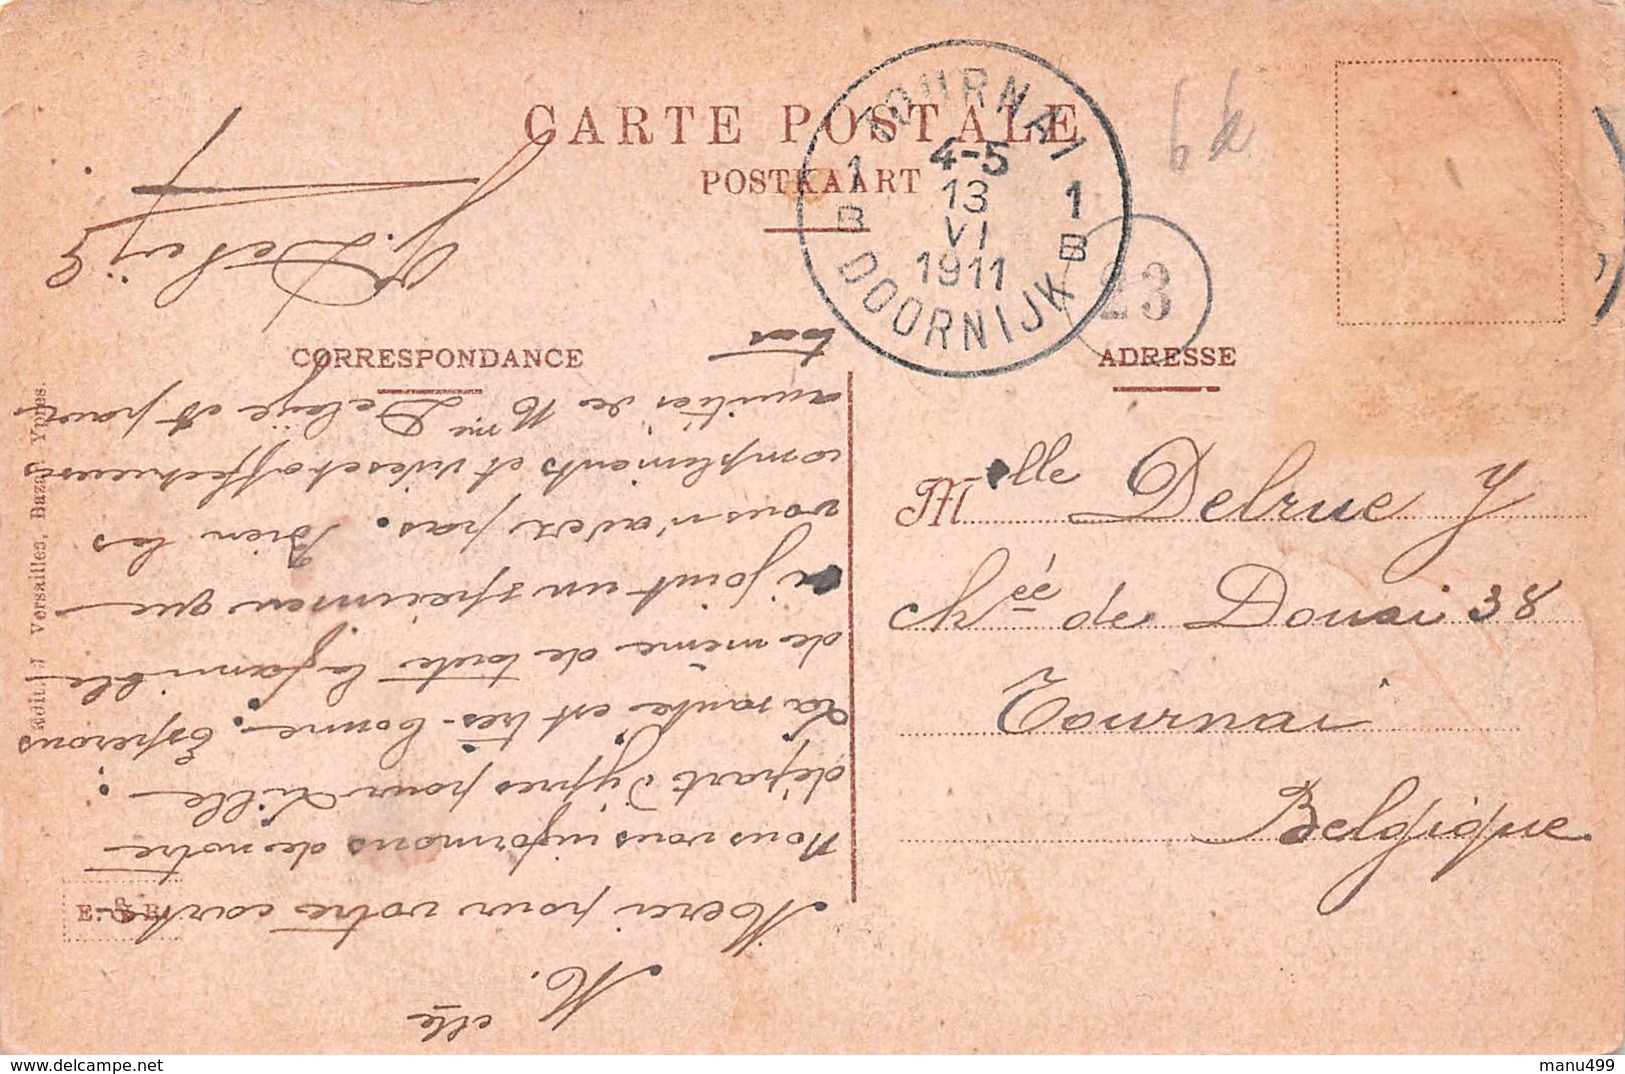 CARTE POSTALE
POSTKAART
TOURNAI
1 4-5 1
B 13 B
VI
1911
DOORNIJK
23
CORRESPONDANCE
ADRESSE
Mlle
Merci pour votre carte
Nous vous informons de notre
départ d'ypres pour Lille.
La santé est très-bonne. Espérons
de même de toute la famille
ci joint un specimen que
vous n'avez pas. Bien les
compliments et vives et affectueuses
amitiés de Mme Delaÿe et pour
M elle Delrue Y
Chée de Douai 38
Tournai
Belgique
Edit. J Versailles, Bazar, Ypres.
E. & B.
manu499
www.delcampe.net